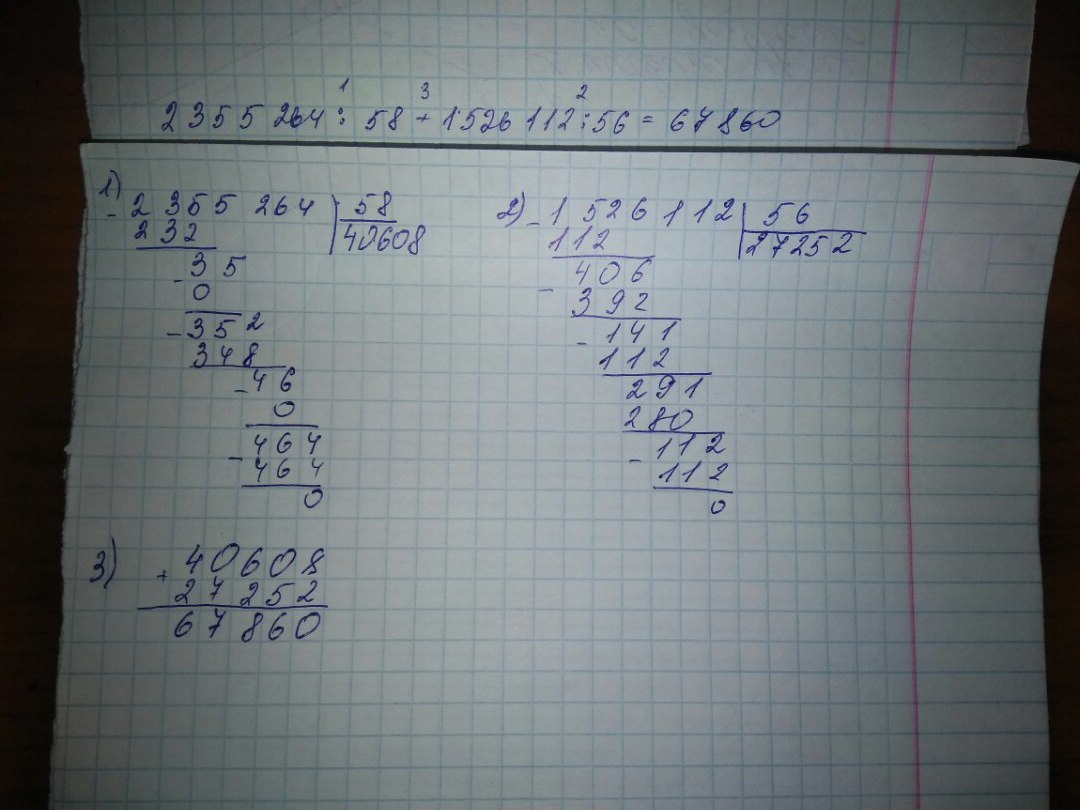 1 3 2
2355 264 : 58 + 1526 112 : 56 = 67860
1)
- 2 355 264 58
232 40608
- 35
0
- 352
348
- 46
0
- 464
464
0
2) - 1 526 112 56
112 27252
- 406
392
- 141
112
291
280
- 112
112
0
3) + 40608
27 252
67 860